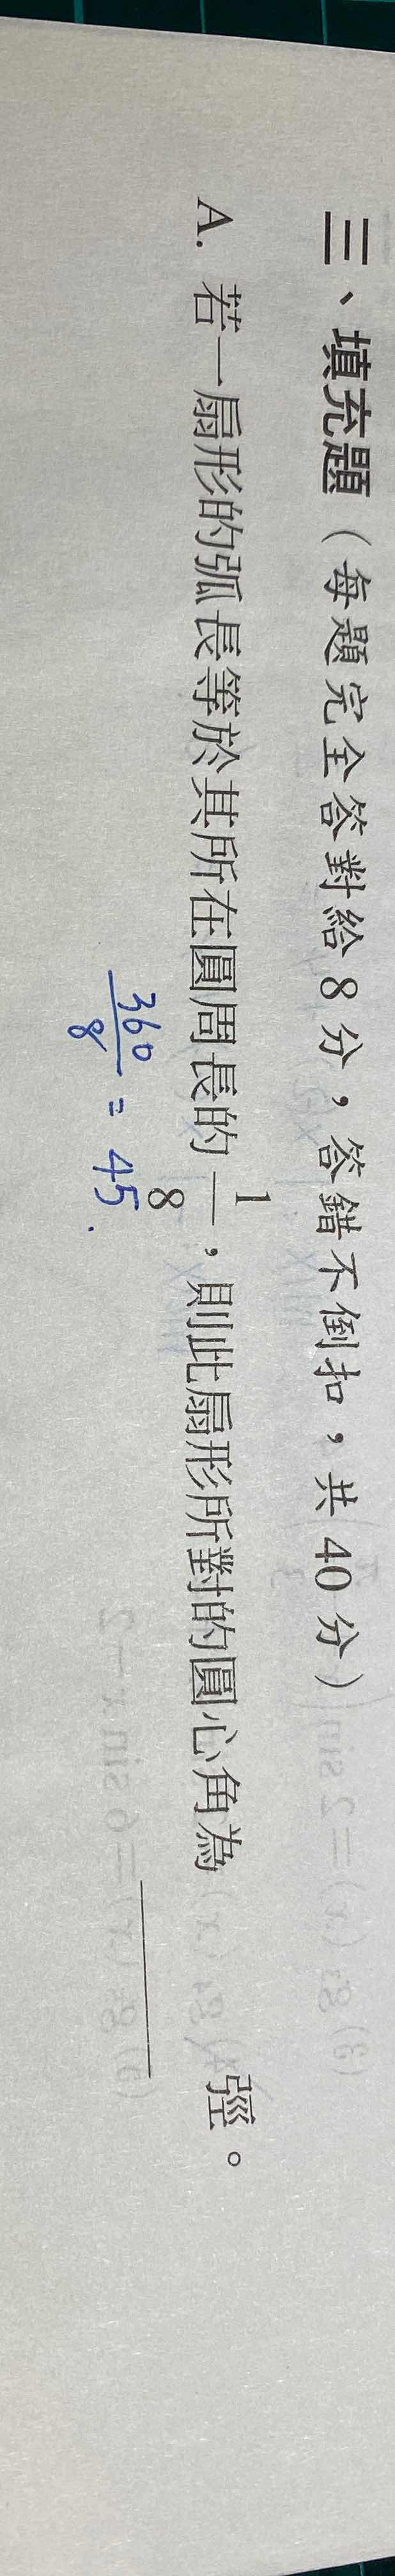 三、填充題（每題完全答對給 8 分，答錯不倒扣，共 40 分）
A. 若一扇形的弧長等於其所在圓周長的 1/8，則此扇形所對的圓心角為______弳。
360/8 = 45.